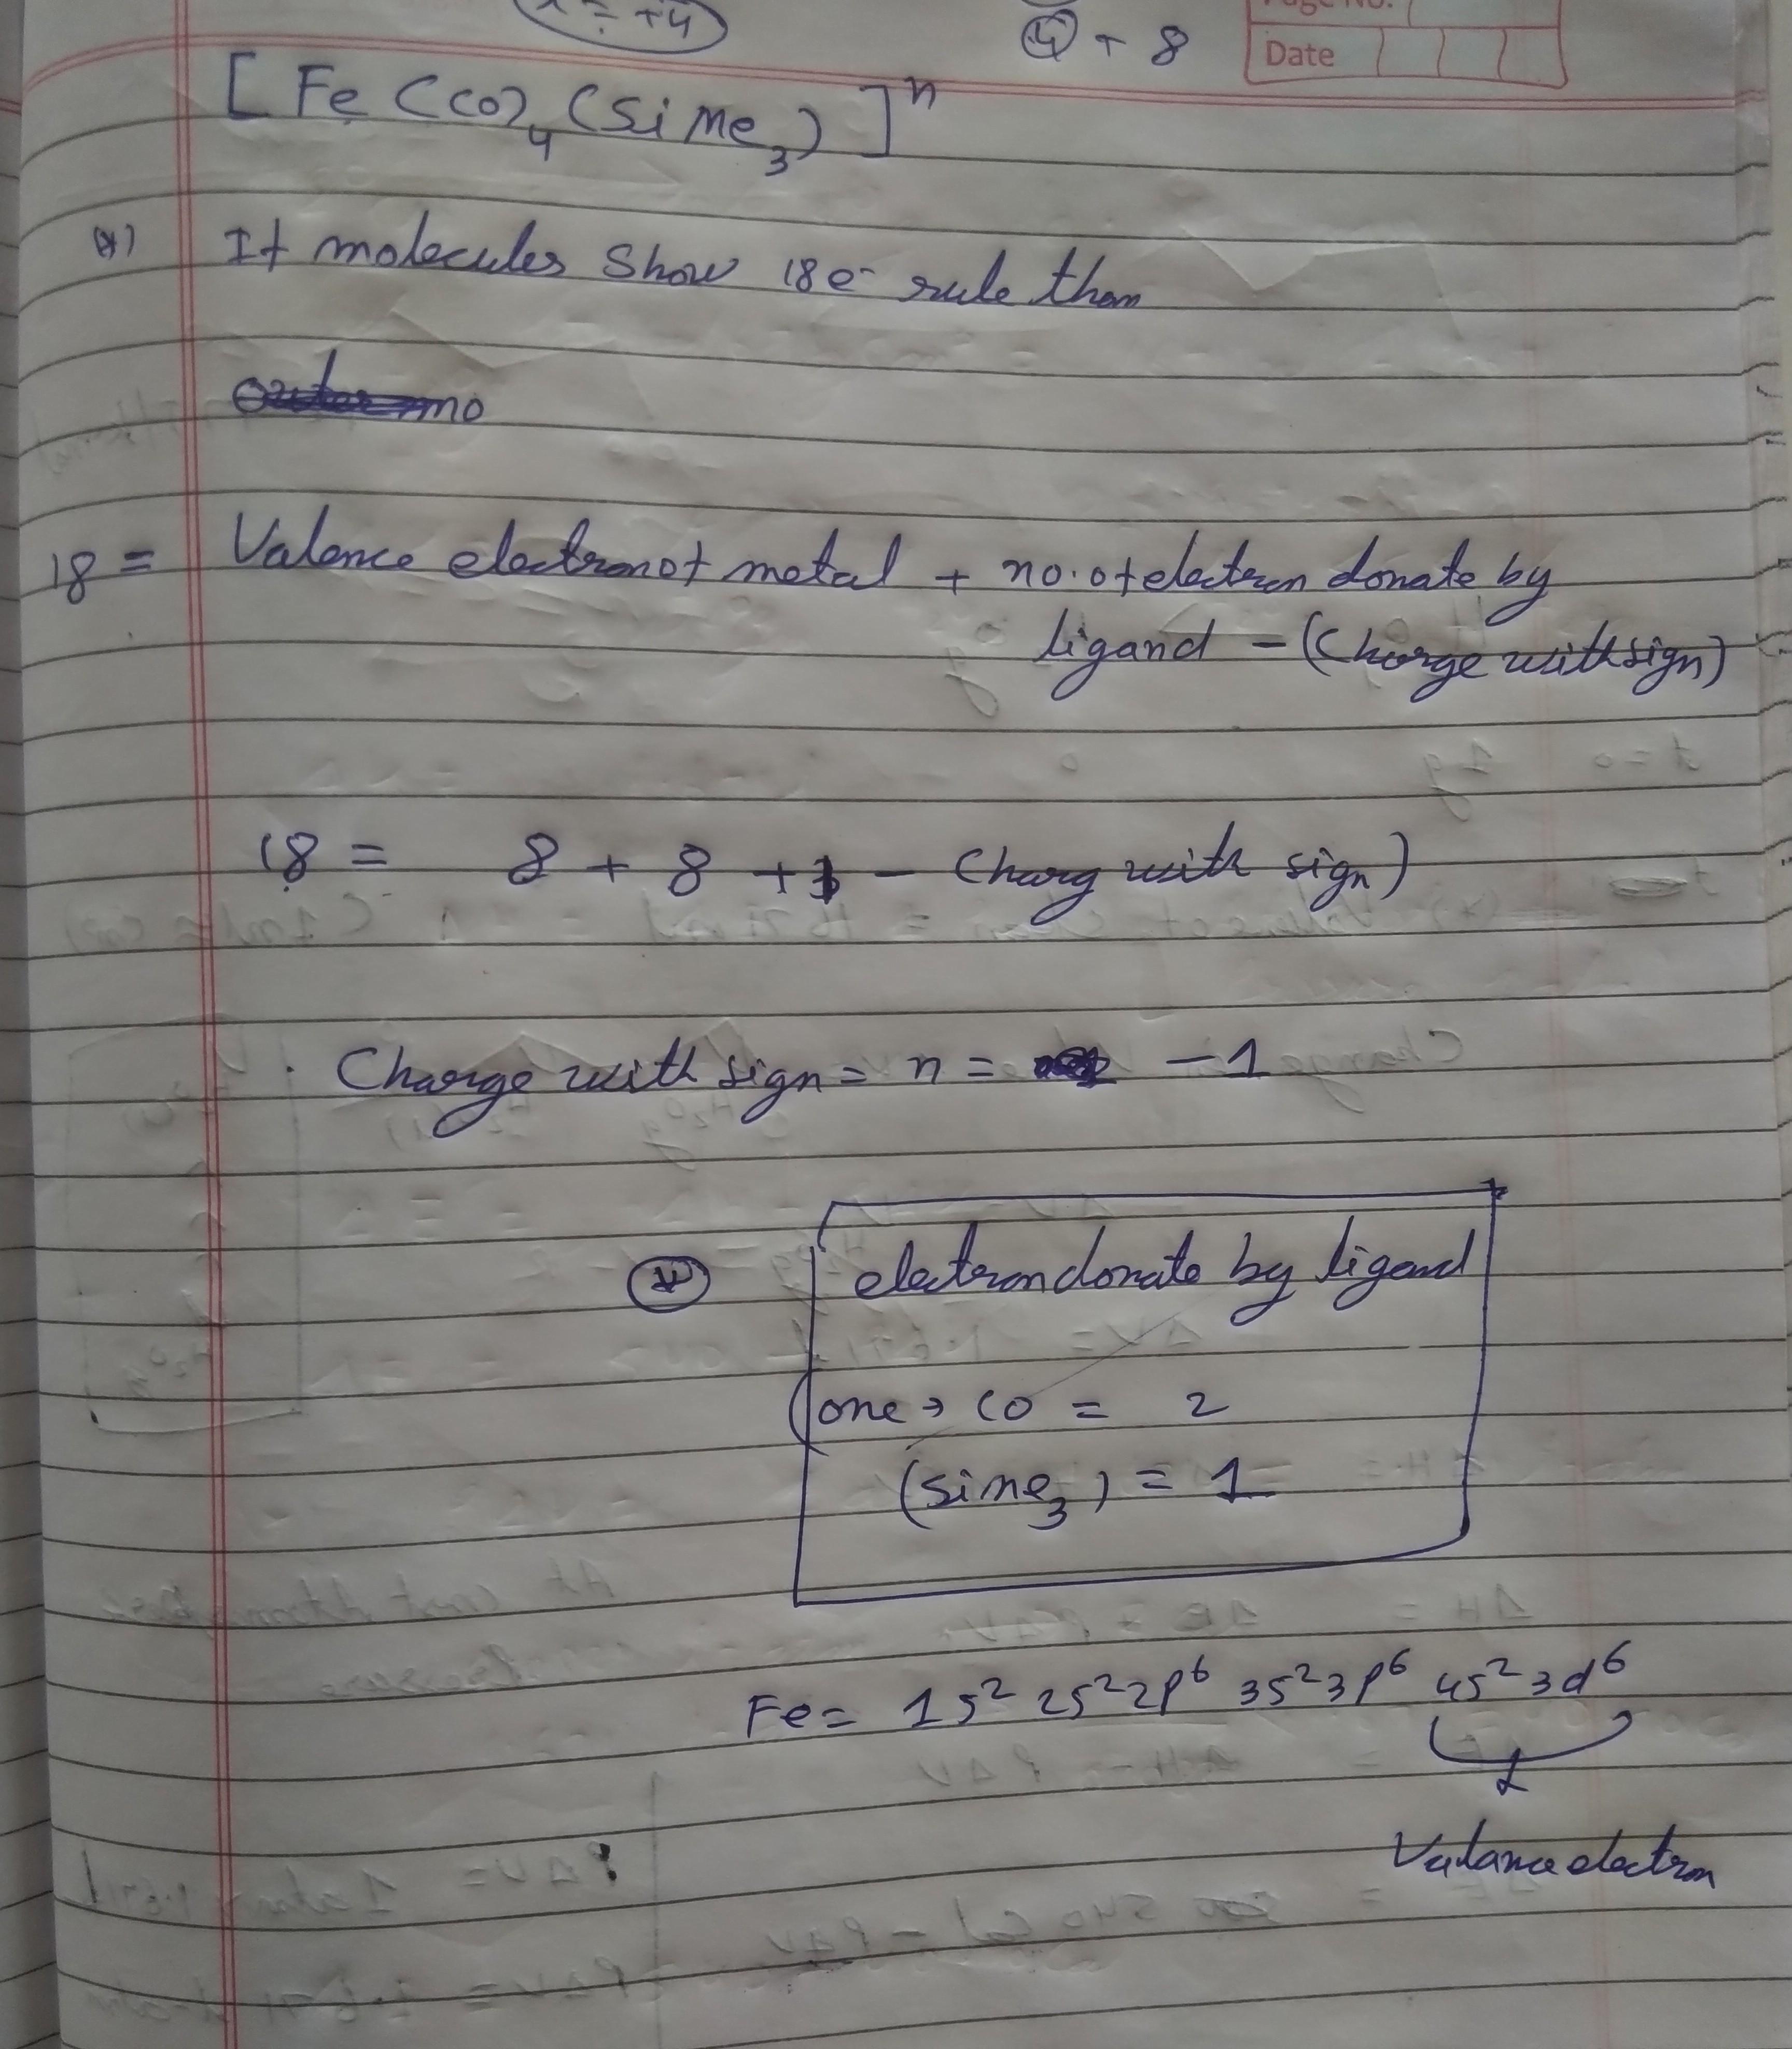 x = +4
④ + 8
Page No.
Date
[Fe (CO)4 (SiMe3)]^n
(*) If molecules Show 18 e- rule than
18 = Valence electron of metal + no. of electron donate by
ligand - (Charge with sign)
18 = 8 + 8 + 1 - Charg with sign)
Charge with sign = n = -1
electron donate by ligand
(one → CO = 2
(sime3) = 1
Fe = 1s² 2s² 2p⁶ 3s² 3p⁶ 4s² 3d⁶
Valance electron